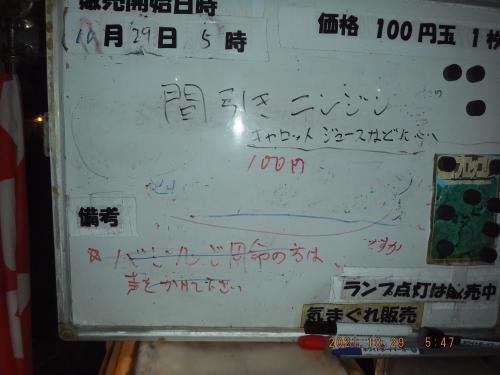 販売開始日時
10月29日 5時
価格 100円玉 1枚
間引きニンジン
キャロットジュースなどに
100円
備考
の方は
声をかけて下さい
ランプ点灯は販売中
気まぐれ販売
2021.10.29 5:47